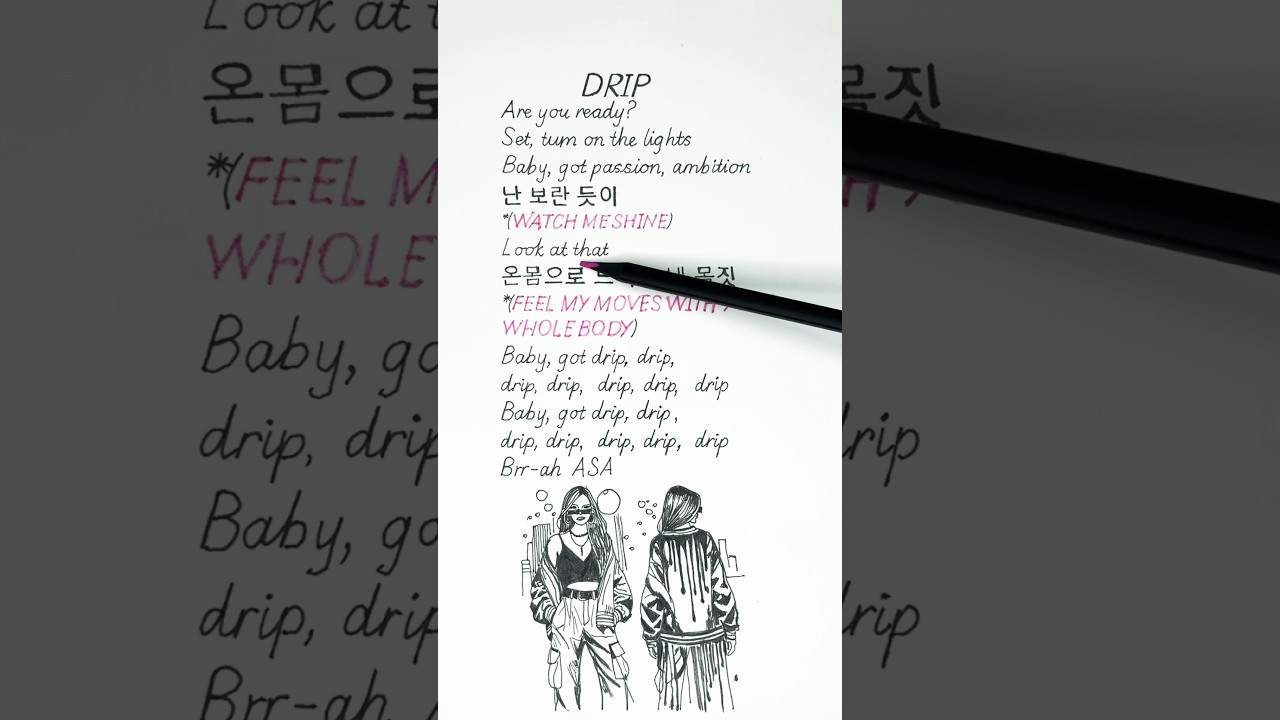 DRIP
Are you ready?
Set, turn on the lights
Baby, got passion, ambition
난 보란 듯이
*(WATCH ME SHINE)
Look at that
온몸으로 몸짓
*(FEEL MY MOVES WITH
WHOLE BODY)
Baby, got drip, drip,
drip, drip, drip, drip, drip
Baby, got drip, drip,
drip, drip, drip, drip, drip
Brr-ah ASA